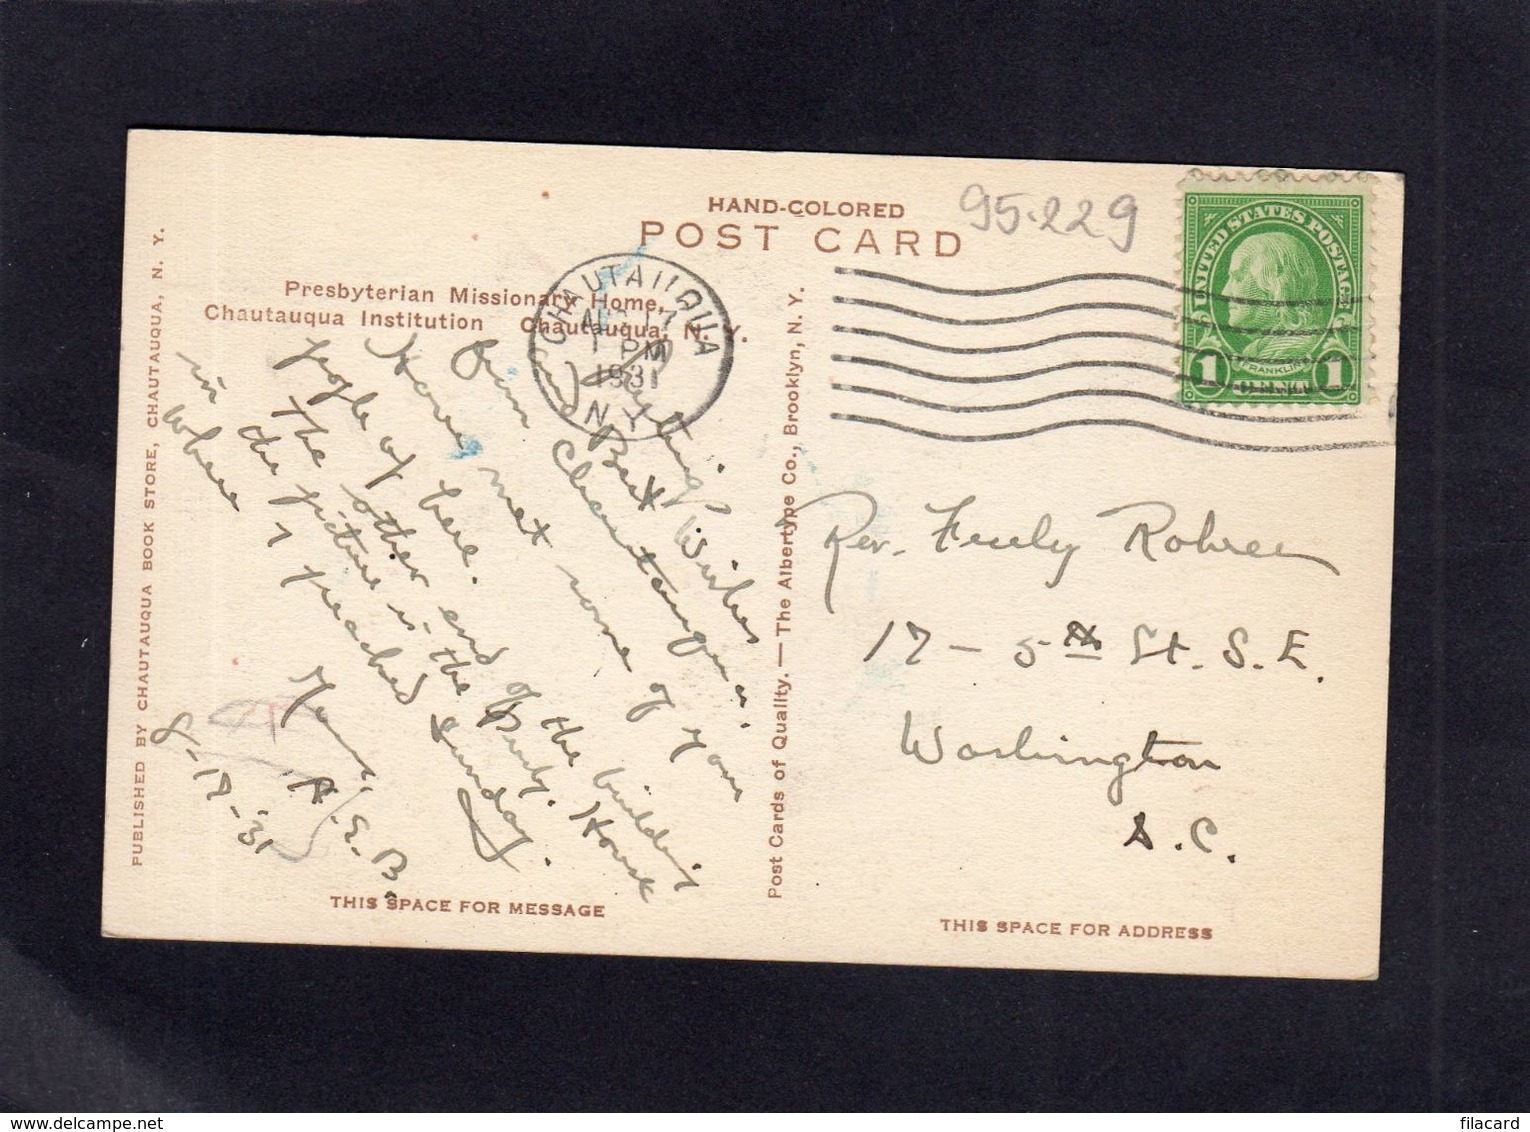 HAND-COLORED
POST CARD
95.229
UNITED STATES POSTAGE
FRANKLIN
1 CENT 1
Presbyterian Missionary Home,
Chautauqua Institution Chautauqua, N. Y.
CHAUTAUQUA
AUG 17
1 PM
1931
N.Y.
Best Wishes
from Chautauqua.
Have met some of your
people of here.
The other end of the building
in the picture is the House
where I preached Sunday.
Yours,
A. E. B.
8-17-'31
Rev. Rohrer
17 - 5th St. S.E.
Washington
D.C.
PUBLISHED BY CHAUTAUQUA BOOK STORE, CHAUTAUQUA, N. Y.
Post Cards of Quality. — The Albertype Co., Brooklyn, N. Y.
THIS SPACE FOR MESSAGE
THIS SPACE FOR ADDRESS
filacard